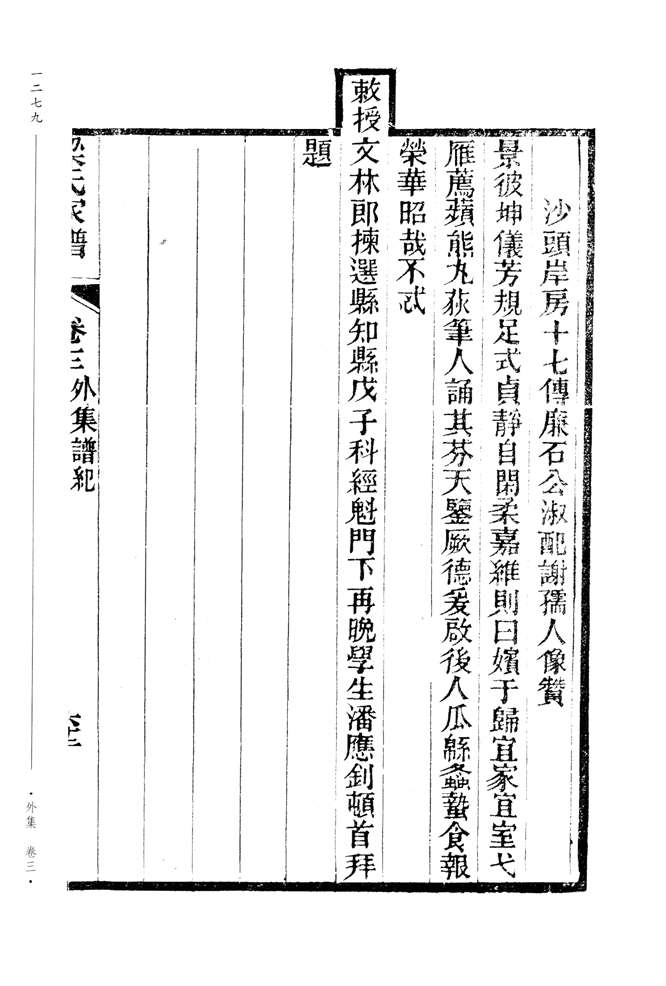 沙頭岸房十七傳廉石公淑配謝孺人像贊
景彼坤儀芳規足式貞靜自閑柔嘉維則曰嬪于歸宜家宜室弋
雁薦蘋熊丸荻筆人誦其芬天鑒厥德爰啟後人瓜緜螽蟄食報
榮華昭哉不忒
敕授文林郎揀選縣知縣戊子科經魁門下再晚學生潘應釗頓首拜
題
梁氏家譜 卷三外集譜紀
一二七九
·外集 卷三·